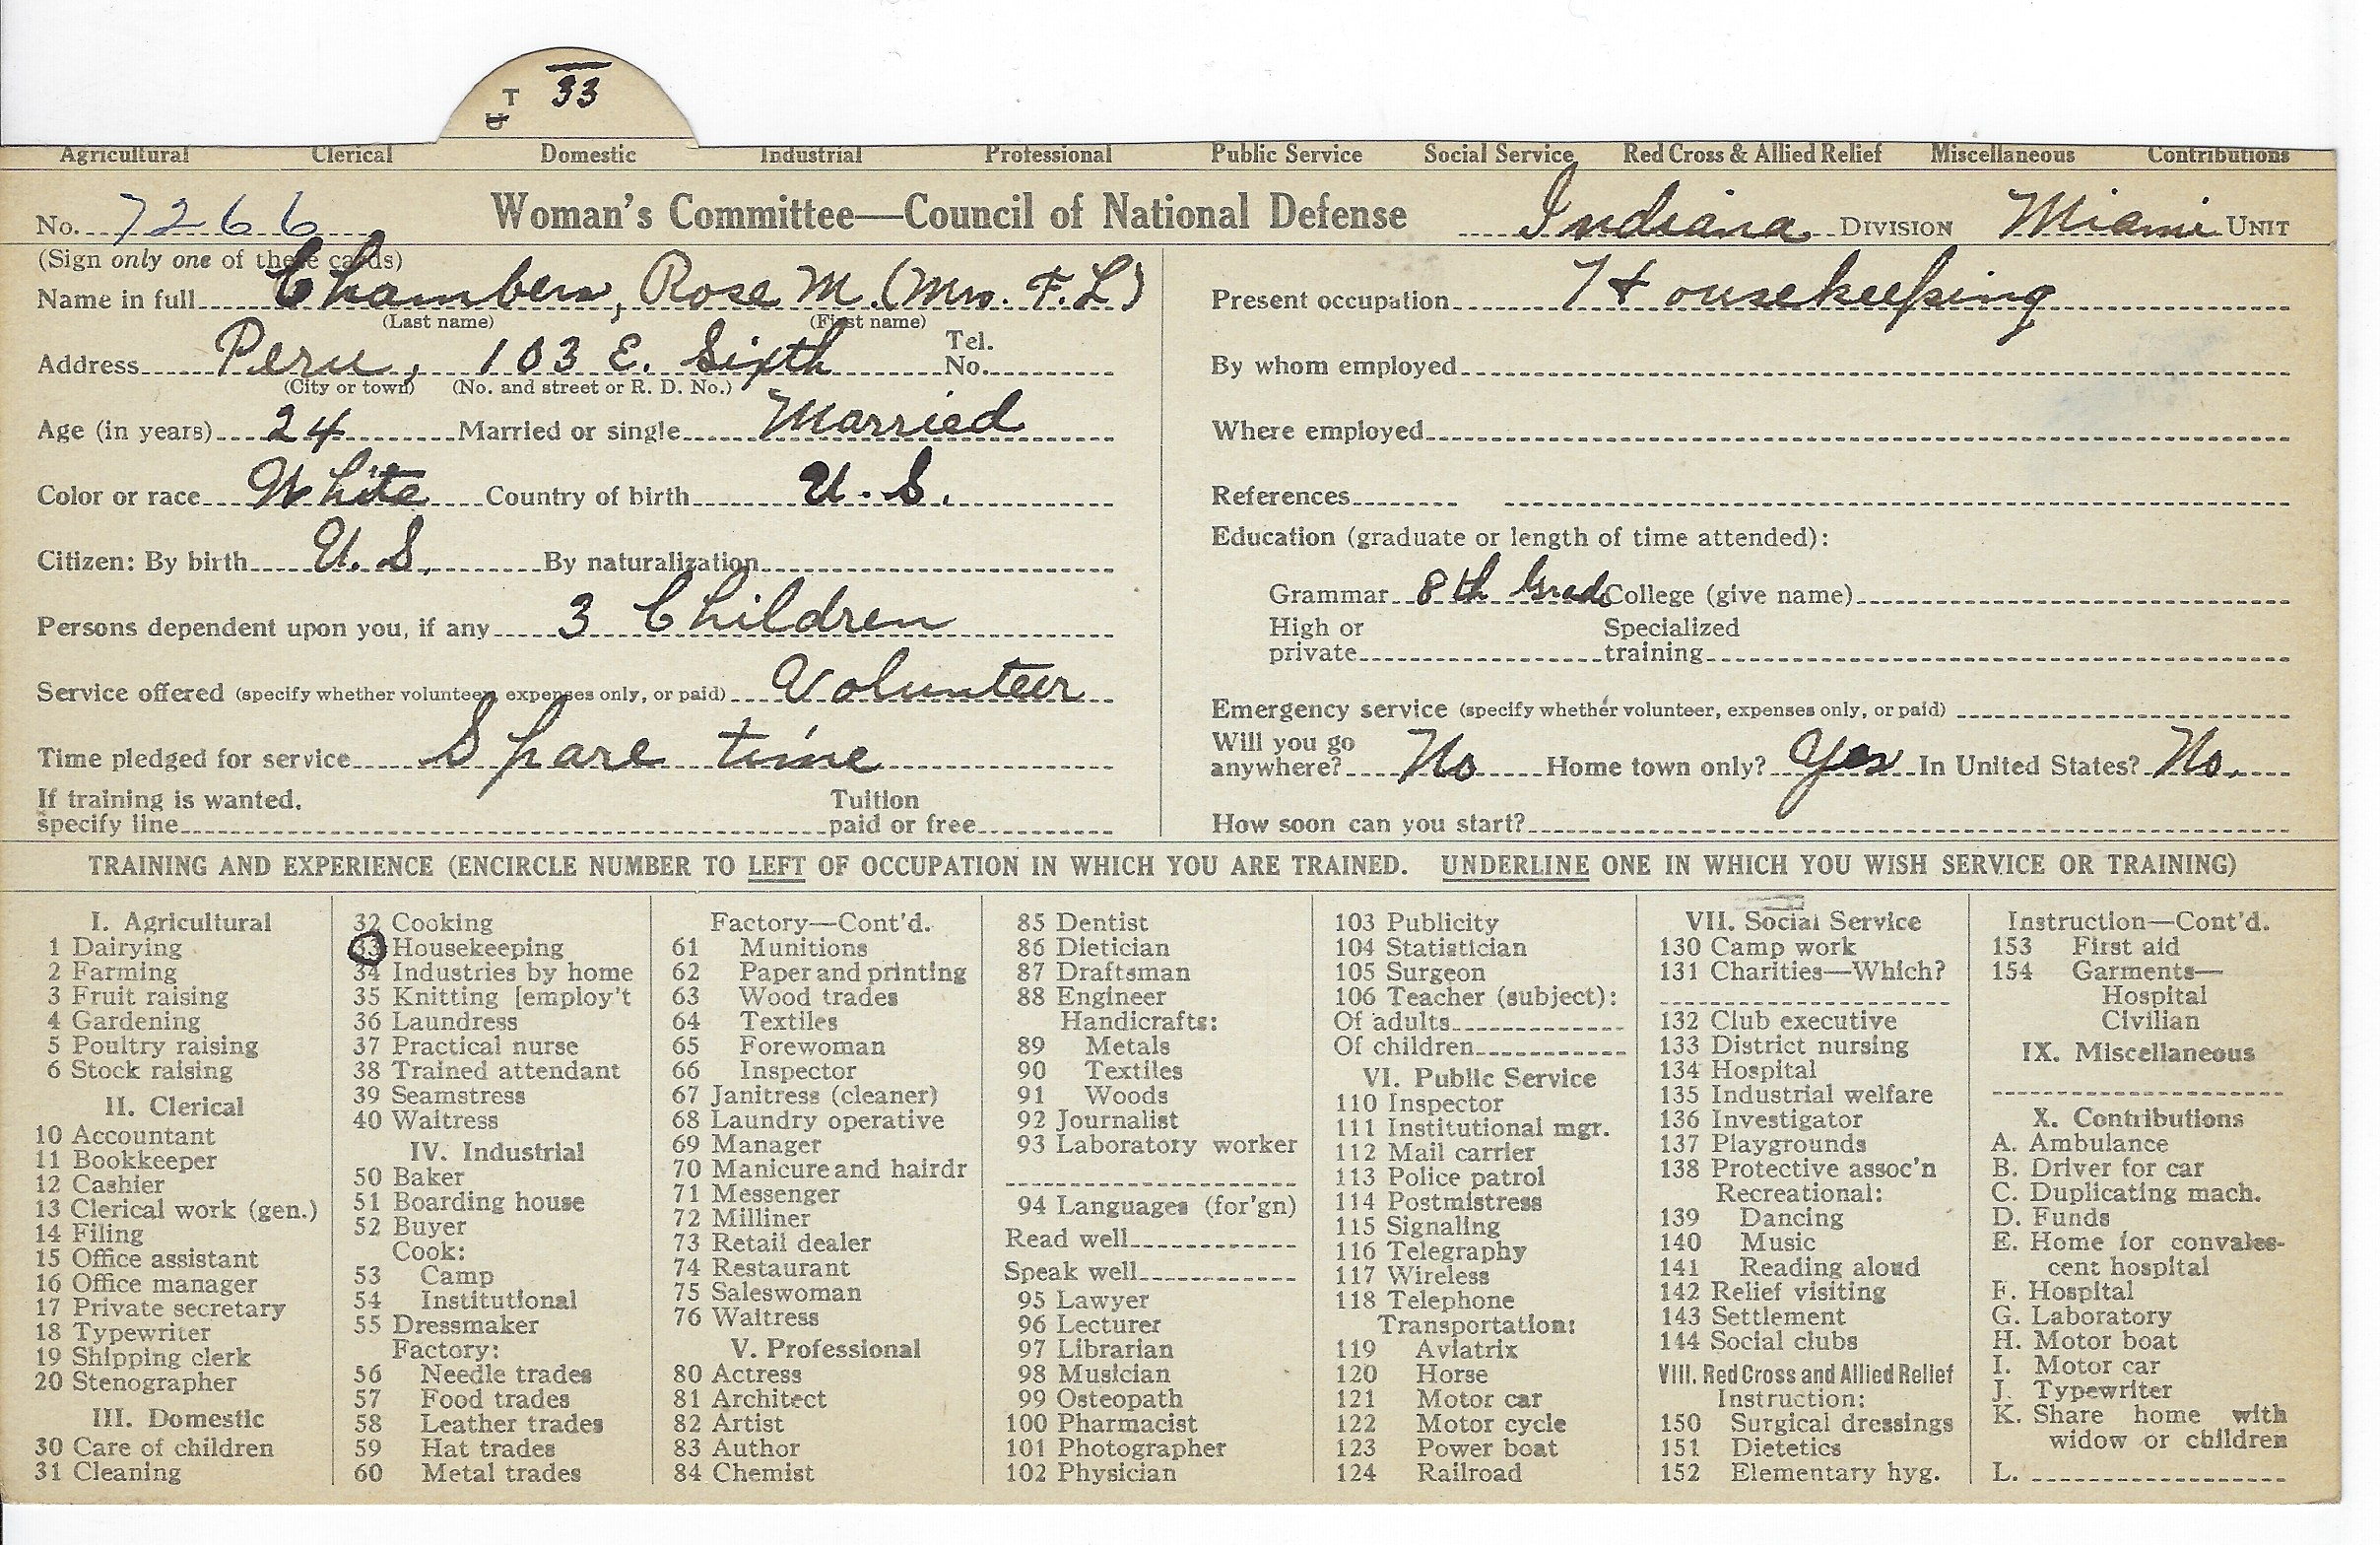 T 33
U
Agricultural Clerical Domestic Industrial Professional Public Service Social Service Red Cross & Allied Relief Miscellaneous Contributions
No. 7266 Woman's Committee—Council of National Defense Indiana DIVISION Miami UNIT
(Sign only one of these cards)
Name in full Chambers, Rose M. (Mrs. F.L)
(Last name) (First name)
Address Peru, 103 E. Sixth Tel. No.
(City or town) (No. and street or R. D. No.)
Age (in years) 24 Married or single Married
Color or race White Country of birth U.S.
Citizen: By birth U.S. By naturalization
Persons dependent upon you, if any 3 Children
Service offered (specify whether volunteer, expenses only, or paid) Volunteer
Time pledged for service Spare time
If training is wanted, specify line Tuition paid or free
Present occupation Housekeeping
By whom employed
Where employed
References
Education (graduate or length of time attended):
Grammar 8th Grade College (give name)
High or private Specialized training
Emergency service (specify whether volunteer, expenses only, or paid)
Will you go anywhere? No Home town only? Yes In United States? No.
How soon can you start?
TRAINING AND EXPERIENCE (ENCIRCLE NUMBER TO LEFT OF OCCUPATION IN WHICH YOU ARE TRAINED. UNDERLINE ONE IN WHICH YOU WISH SERVICE OR TRAINING)
I. Agricultural
1 Dairying
2 Farming
3 Fruit raising
4 Gardening
5 Poultry raising
6 Stock raising
II. Clerical
10 Accountant
11 Bookkeeper
12 Cashier
13 Clerical work (gen.)
14 Filing
15 Office assistant
16 Office manager
17 Private secretary
18 Typewriter
19 Shipping clerk
20 Stenographer
III. Domestic
30 Care of children
31 Cleaning
32 Cooking
33 Housekeeping
34 Industries by home
35 Knitting [employ't
36 Laundress
37 Practical nurse
38 Trained attendant
39 Seamstress
40 Waitress
IV. Industrial
50 Baker
51 Boarding house
52 Buyer
Cook:
53 Camp
54 Institutional
55 Dressmaker
Factory:
56 Needle trades
57 Food trades
58 Leather trades
59 Hat trades
60 Metal trades
Factory—Cont'd.
61 Munitions
62 Paper and printing
63 Wood trades
64 Textiles
65 Forewoman
66 Inspector
67 Janitress (cleaner)
68 Laundry operative
69 Manager
70 Manicure and hairdr
71 Messenger
72 Milliner
73 Retail dealer
74 Restaurant
75 Saleswoman
76 Waitress
V. Professional
80 Actress
81 Architect
82 Artist
83 Author
84 Chemist
85 Dentist
86 Dietician
87 Draftsman
88 Engineer
Handicrafts:
89 Metals
90 Textiles
91 Woods
92 Journalist
93 Laboratory worker
94 Languages (for'gn)
Read well
Speak well
95 Lawyer
96 Lecturer
97 Librarian
98 Musician
99 Osteopath
100 Pharmacist
101 Photographer
102 Physician
103 Publicity
104 Statistician
105 Surgeon
106 Teacher (subject):
Of adults
Of children
VI. Public Service
110 Inspector
111 Institutional mgr.
112 Mail carrier
113 Police patrol
114 Postmistress
115 Signaling
116 Telegraphy
117 Wireless
118 Telephone
Transportation:
119 Aviatrix
120 Horse
121 Motor car
122 Motor cycle
123 Power boat
124 Railroad
VII. Social Service
130 Camp work
131 Charities—Which?
132 Club executive
133 District nursing
134 Hospital
135 Industrial welfare
136 Investigator
137 Playgrounds
138 Protective assoc'n
Recreational:
139 Dancing
140 Music
141 Reading aloud
142 Relief visiting
143 Settlement
144 Social clubs
VIII. Red Cross and Allied Relief
Instruction:
150 Surgical dressings
151 Dietetics
152 Elementary hyg.
Instruction—Cont'd.
153 First aid
154 Garments—
Hospital
Civilian
IX. Miscellaneous
X. Contributions
A. Ambulance
B. Driver for car
C. Duplicating mach.
D. Funds
E. Home for convales-
cent hospital
F. Hospital
G. Laboratory
H. Motor boat
I. Motor car
J. Typewriter
K. Share home with
widow or children
L.